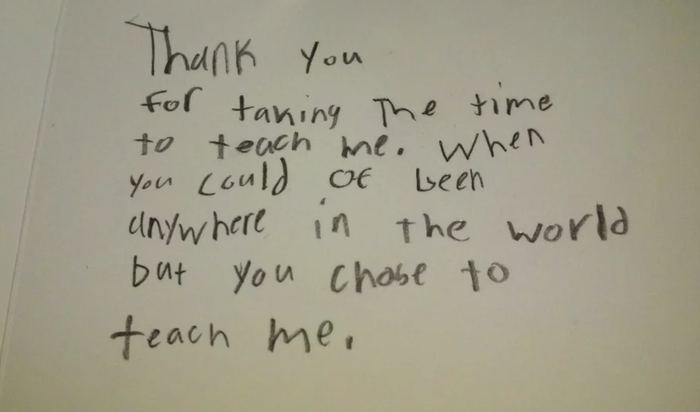 Thank you
for taking The time
to teach me. When
you could of been
anywhere in the world
but you chose to
teach me.